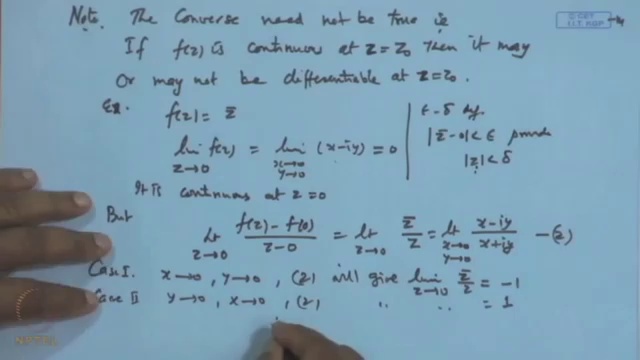 Note. The Converse need not be true ie
© CET
I.I.T. KGP
If f(z) is continuous at z=z₀ then it may
Or may not be differentiable at z=z₀.
Ex. f(z) = z̄
ε-δ def.
lim z→0 f(z) = lim x→0 y→0 (x-iy) = 0
|z̄-0|<ε provide
|z|<δ
It is continuous at z=0
But
lt z→0 (f(z)-f(0))/(z-0) = lt z→0 z̄/z = lt x→0 y→0 (x-iy)/(x+iy) —(2)
Case I. x→0, y→0, (2) will give lim z→0 z̄/z = -1
Case II y→0, x→0, (2) " " = 1
NPTEL